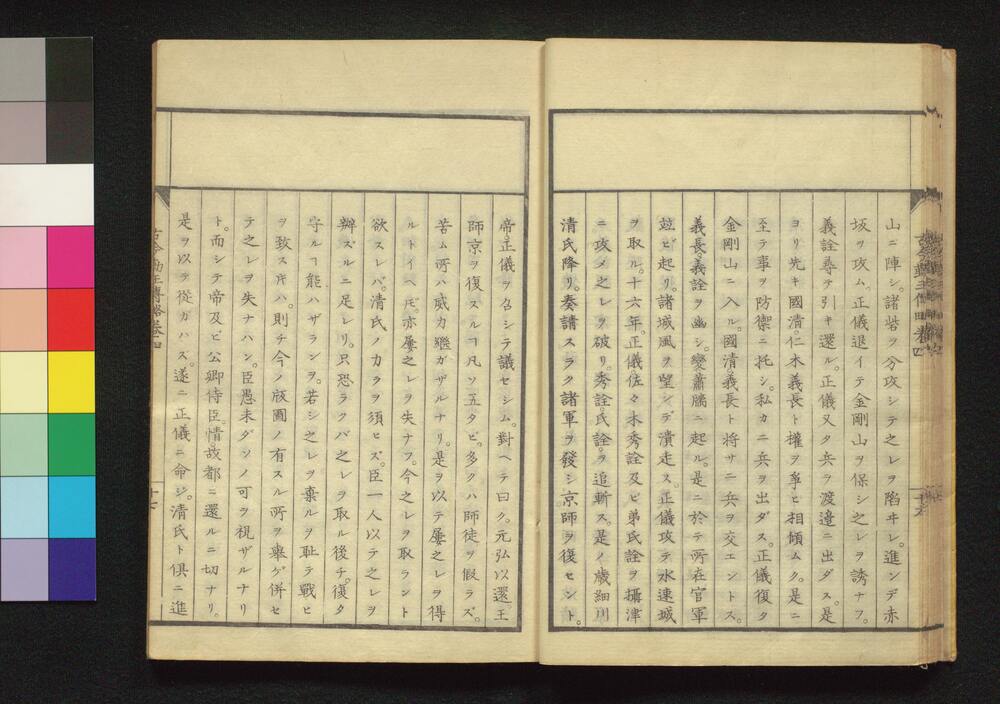 山ニ陣シ。諸砦ヲ分攻シテ之レヲ陷ヰレ。進ンデ赤
坂ヲ攻ム。正儀退イテ金剛山ヲ保シ之レヲ誘ナフ。
義詮尋テ引キ還ル。正儀又タ兵ヲ渡邉ニ出ダス。是
ヨリ先キ國清。仁木義長ト權ヲ爭ヒ相傾ムク。是ニ
至テ事ヲ防禦ニ托シ。私カニ兵ヲ出ダス。正儀復タ
金剛山ニ入ル。國清義長ト將サニ兵ヲ交エントス。
義長義詮ヲ幽シ。變蕭牆ニ起ル。是ニ於テ所在官軍
竝ビ起リ。諸城風ヲ望ンデ潰走ス。正儀攻テ水速城
ヲ取ル。十六年。正儀佐々木秀詮及ビ弟氏詮ヲ攝津
ニ攻メ之レヲ破リ。秀詮氏詮ヲ追斬ス。是ノ歳細川
清氏降リ。奏請スラク諸軍ヲ發シ京師ヲ復セント。
帝正儀ヲ召シテ議セシム。對ヘテ曰ク。元弘以還王
師京ヲ復スルヿ凡ソ五タビ。多クハ師徒ヲ假ラズ。
苦ム所ハ威力繼ガザルナリ。是ヲ以テ屢之レヲ得
ルトイヘ𪜈。亦屢之レヲ失ナフ。今之レヲ取ラント
欲スレバ。清氏ノ力ラヲ須ヒズ。臣一人以テ之レヲ
辨ズルニ足レリ。只恐ラクバ之レヲ取ル後チ。復タ
守ルヿ能ハザランヲ。若シ之レヲ棄ルヲ耻テ戰ヒ
ヲ致ス𪜈ハ。則チ今ノ版圖ノ有スル所ヲ擧ゲ併セ
テ之レヲ失ナハン。臣愚未ダソノ可ヲ視ザルナリ
ト。而シテ帝及ビ公卿侍臣。情故都ニ還ルニ切ナリ。
是ヲ以テ從ガハズ。遂ニ正儀ニ命ジ。清氏ト俱ニ進
古今勤王傳略卷四